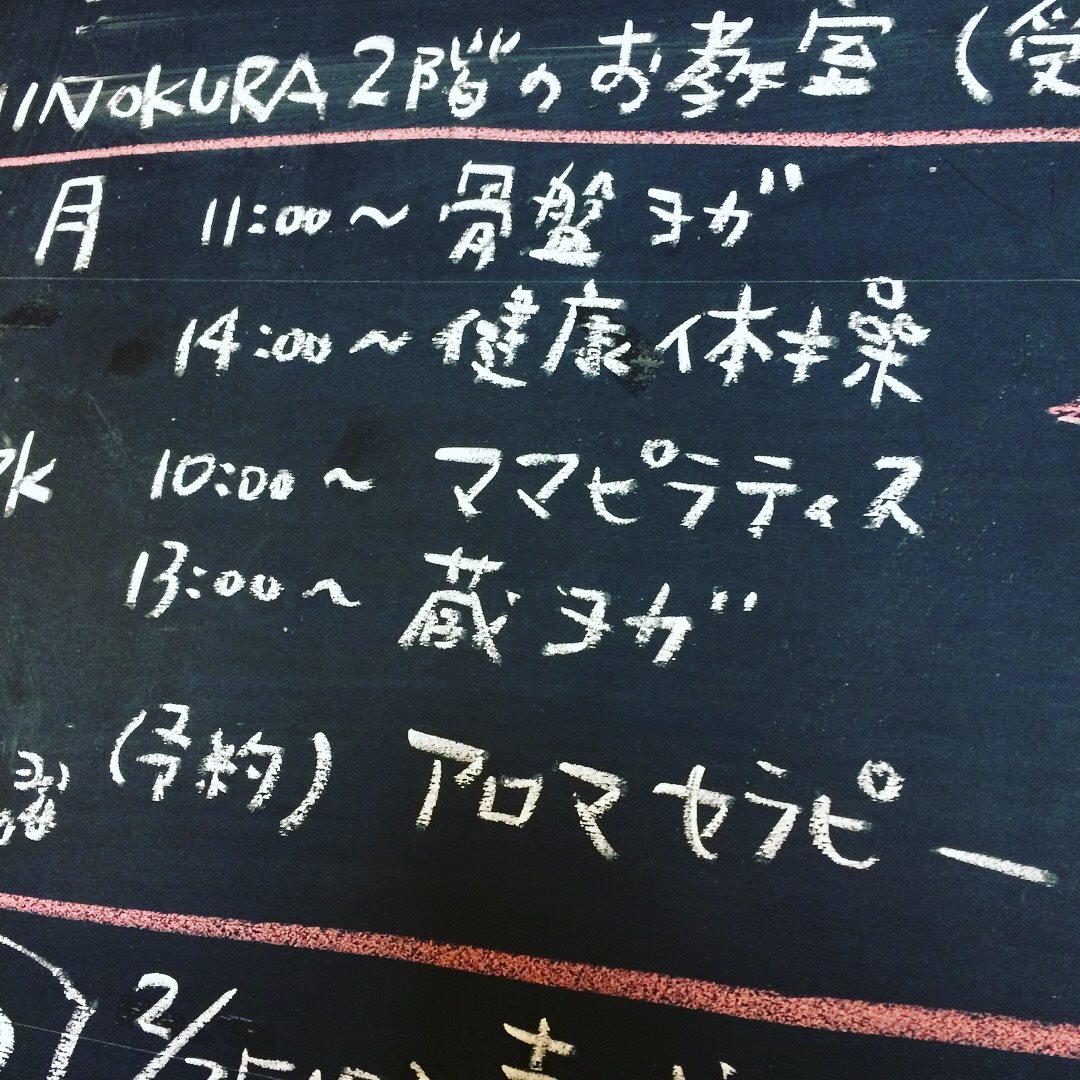 INOKURA 2階のお教室 (受
月 11:00〜 骨盤ヨガ
14:00〜 健康体操
水 10:00〜 ママピラティス
13:00〜 蔵ヨガ
(予約) アロマセラピー
2/25